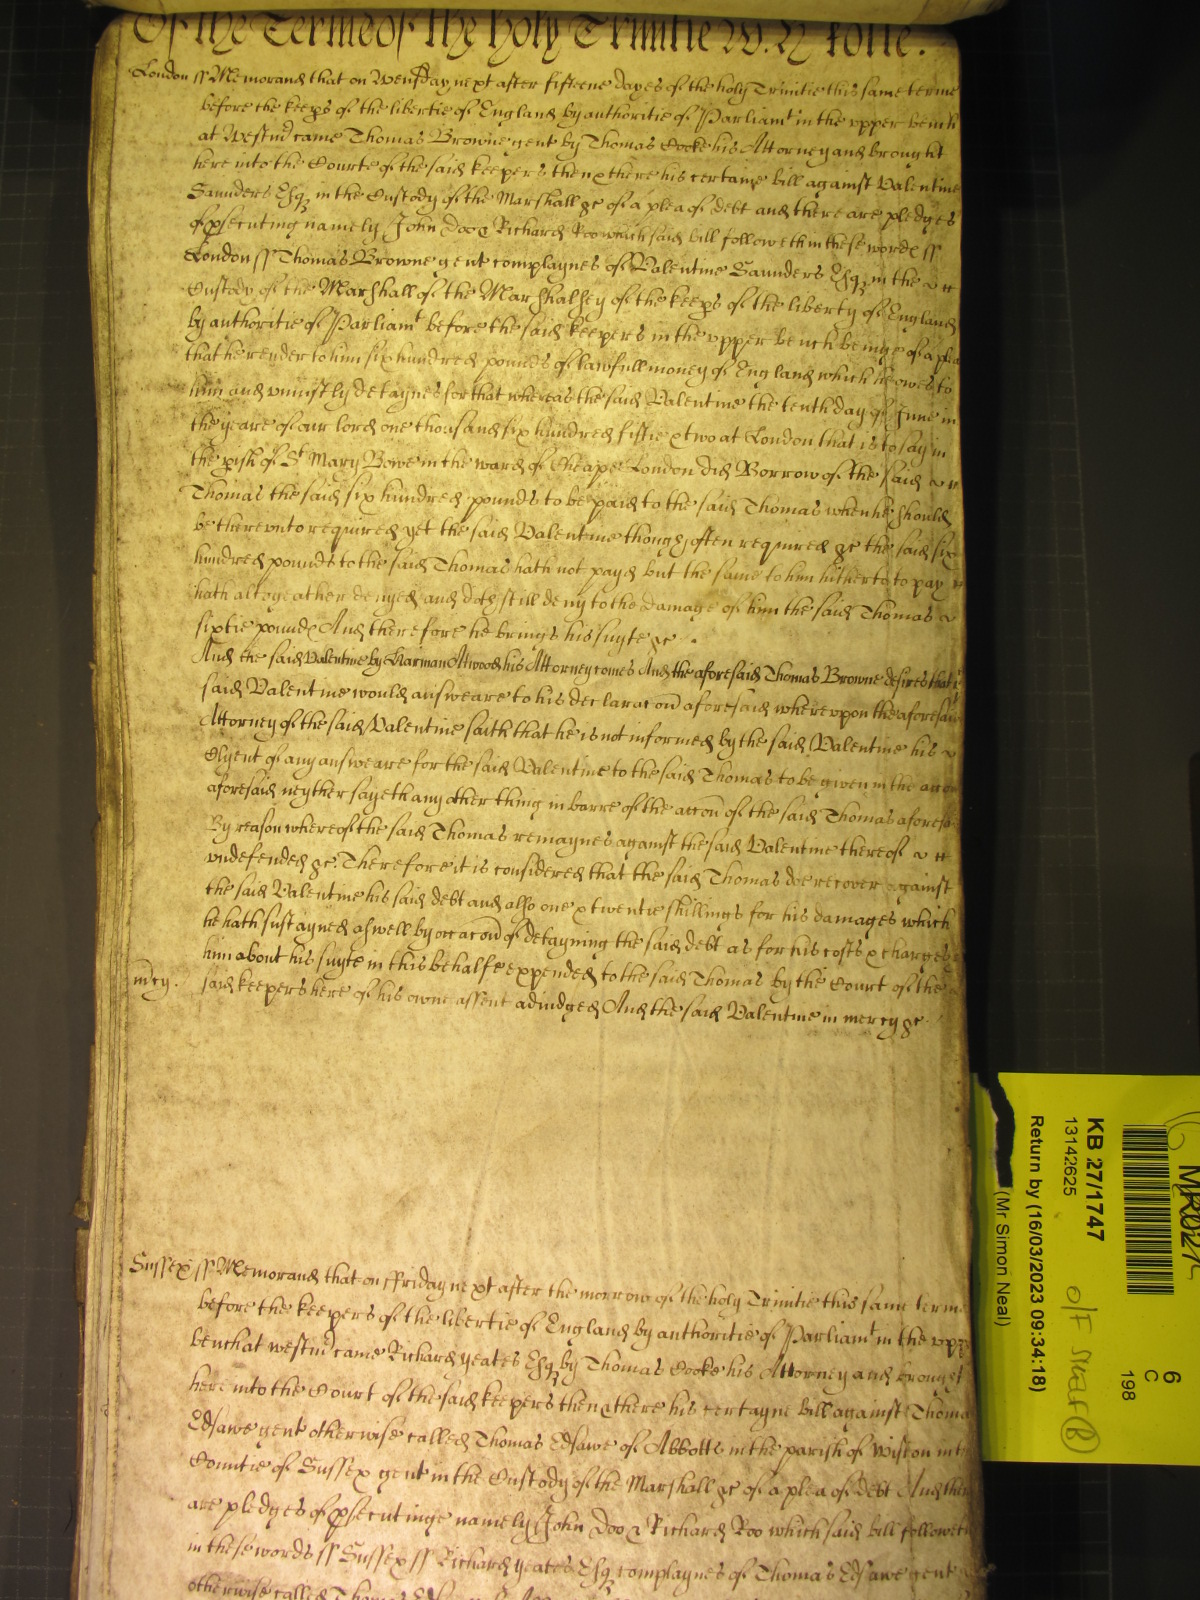 Of the Terme of the holy Trinitie W. R rolle.
London ss Memorand that on Wensday next after fifteene dayes of the holy Trinitie this same terme
before the keeps of the libertie of England by authoritie of Parliamt in the vpper bench
at Westm came Thomas Browne gent by Thomas Cooke his Attorney and brought
here into the Courte of the said keepers then & there his certaine bill against Valentine
Saunders Esq in the Custody of the Marshall &c of a plea of debt and there are pledges
of psecuting namely John Doo & Richard Roo which said bill followeth in these words ss
London ss Thomas Browne gent complaynes of Valentine Saunders Esq in the
Custody of the Marshall of the Marshalsey of the keeps of the liberty of England
by authoritie of Parliamt before the said keepers in the vpper bench beinge of a plea
that he render to him six hundred pounds of lawfull money of England which he owes to
him and vniustly detaynes for that whereas the said Valentine the tenth day of June in
the yeare of our lord one thousand six hundred fiftie & two at London that is to say in
the pish of St Mary Bowe in the ward of Cheape London did Borrow of the said
Thomas the said six hundred pounds to be paid to the said Thomas when he should
be therevnto required yet the said Valentine though often required &c the said six
hundred pounds to the said Thomas hath not payd but the same to him hitherto to pay
hath altogeather denyed and doth still deny to the damage of him the said Thomas
sixtie pounds And therefore he brings his suyte &c
And the said Valentine by Harman Atwood his Attorney comes And the aforesaid Thomas Browne desires that
said Valentine would answeare to his declaracon aforesaid wherevpon the aforesaid
Attorney of the said Valentine saith that he is not informed by the said Valentine his
Clyent of any answeare for the said Valentine to the said Thomas to be given in the accon
aforesaid neyther sayeth any other thing in barre of the accon of the said Thomas aforesd
By reason whereof the said Thomas remaynes against the said Valentine thereof
vndefended &c. Therefore it is considered that the said Thomas doe recover against
the said Valentine his said debt and also one & twentie shillings for his damages which
he hath sustayned aswell by occacon of detayning the said debt as for his costs & charges
him about his suyte in this behalfe expended to the said Thomas by the Court of the
mcy. said keepers here of his owne assent adiudged And the said Valentine in mercy &c
Sussex ss Memorand that on ffriday next after the morrow of the holy Trinitie this same terme
before the keepers of the libertie of England by authoritie of Parliamt in the vpp
bench at westm came Richard yeates Esq by Thomas Cooke his Attorney and brought
here into the Court of the said keepers then & there his certayne bill against Thoma
Edsawe gent otherwise called Thomas Edsawe of Abbotts in the parish of Wiston in
Countie of Sussex gent in the Custody of the Marshall &c of a plea of debt And ther
are pledges of psecutinge namely John Doo & Richard Roo which said bill followeth
in these words ss Sussex ss Richard yeates Esq complaynes of Thomas Edsawe gent
otherwise called Thomas
KB 27/1747
13142625
Return by (16/03/2023 09:34:18)
(Mr Simon Neal)
6
C
198